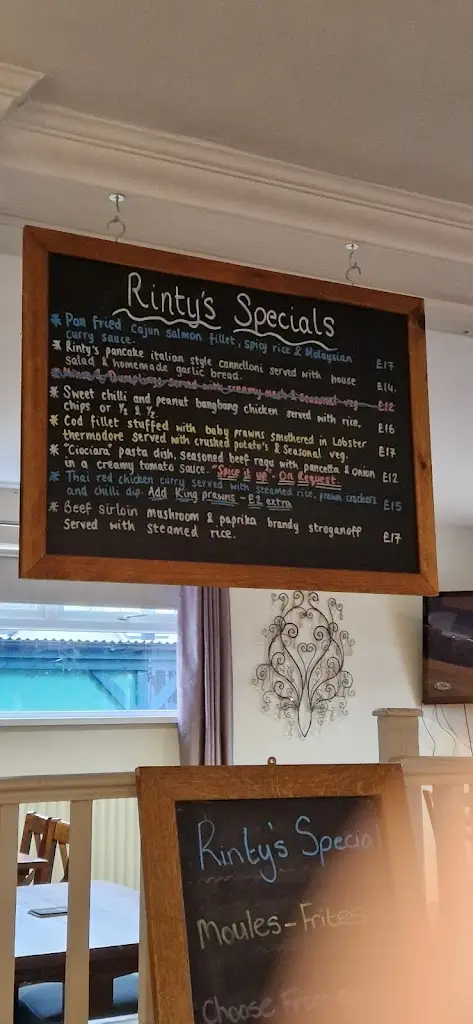 Rinty's Specials
* Pan fried Cajun salmon fillet, spicy rice & Malaysian
curry sauce. £17
* Rinty's pancake italian style cannelloni served with house
salad & homemade garlic bread. £14.
* Mince & Dumplings served with creamy mash & seasonal veg £12
* Sweet chilli and peanut bangbang chicken served with rice,
chips or ½ & ½. £16
* Cod fillet stuffed with baby prawns, smothered in Lobster
thermodore served with crushed potato's & Seasonal veg. £17
* "Ciociara" pasta dish, seasoned beef ragu with pancetta & onion
in a creamy tomato sauce. "Spice it up" - On Request. £12
* Thai red chicken curry served with steamed rice, prawn crackers
and chilli dip. Add King prawns - £2 extra £15
* Beef sirloin mushroom & paprika brandy stroganoff
served with steamed rice. £17
Rinty's Special
Moules - Frites
Choose From